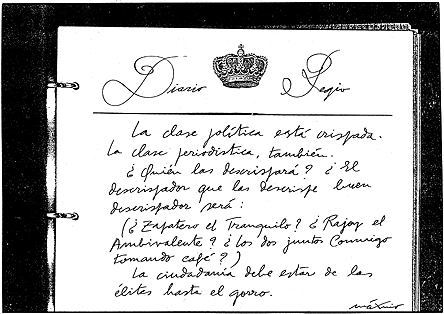 Diario Regio
La clase política está crispada.
La clase periodística, también.
¿Quién las descrispará? ¿El
descrispador que las descrispe buen
descrispador será:
(¿Zapatero el Tranquilo? ¿Rajoy el
Ambivalente? ¿Los dos juntos conmigo
tomando café?)
La ciudadanía debe estar de las
élites hasta el gorro.
máximo